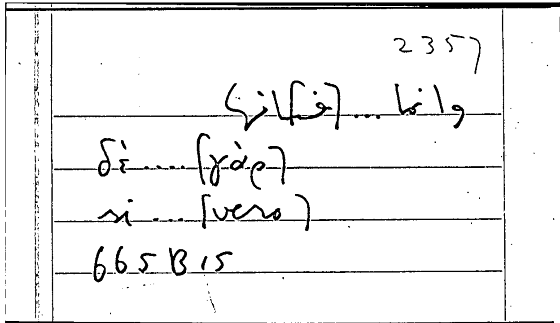 2357
وانما ... [فكانى]
δὲ .... [γὰρ]
si .... [vero]
665 B 15